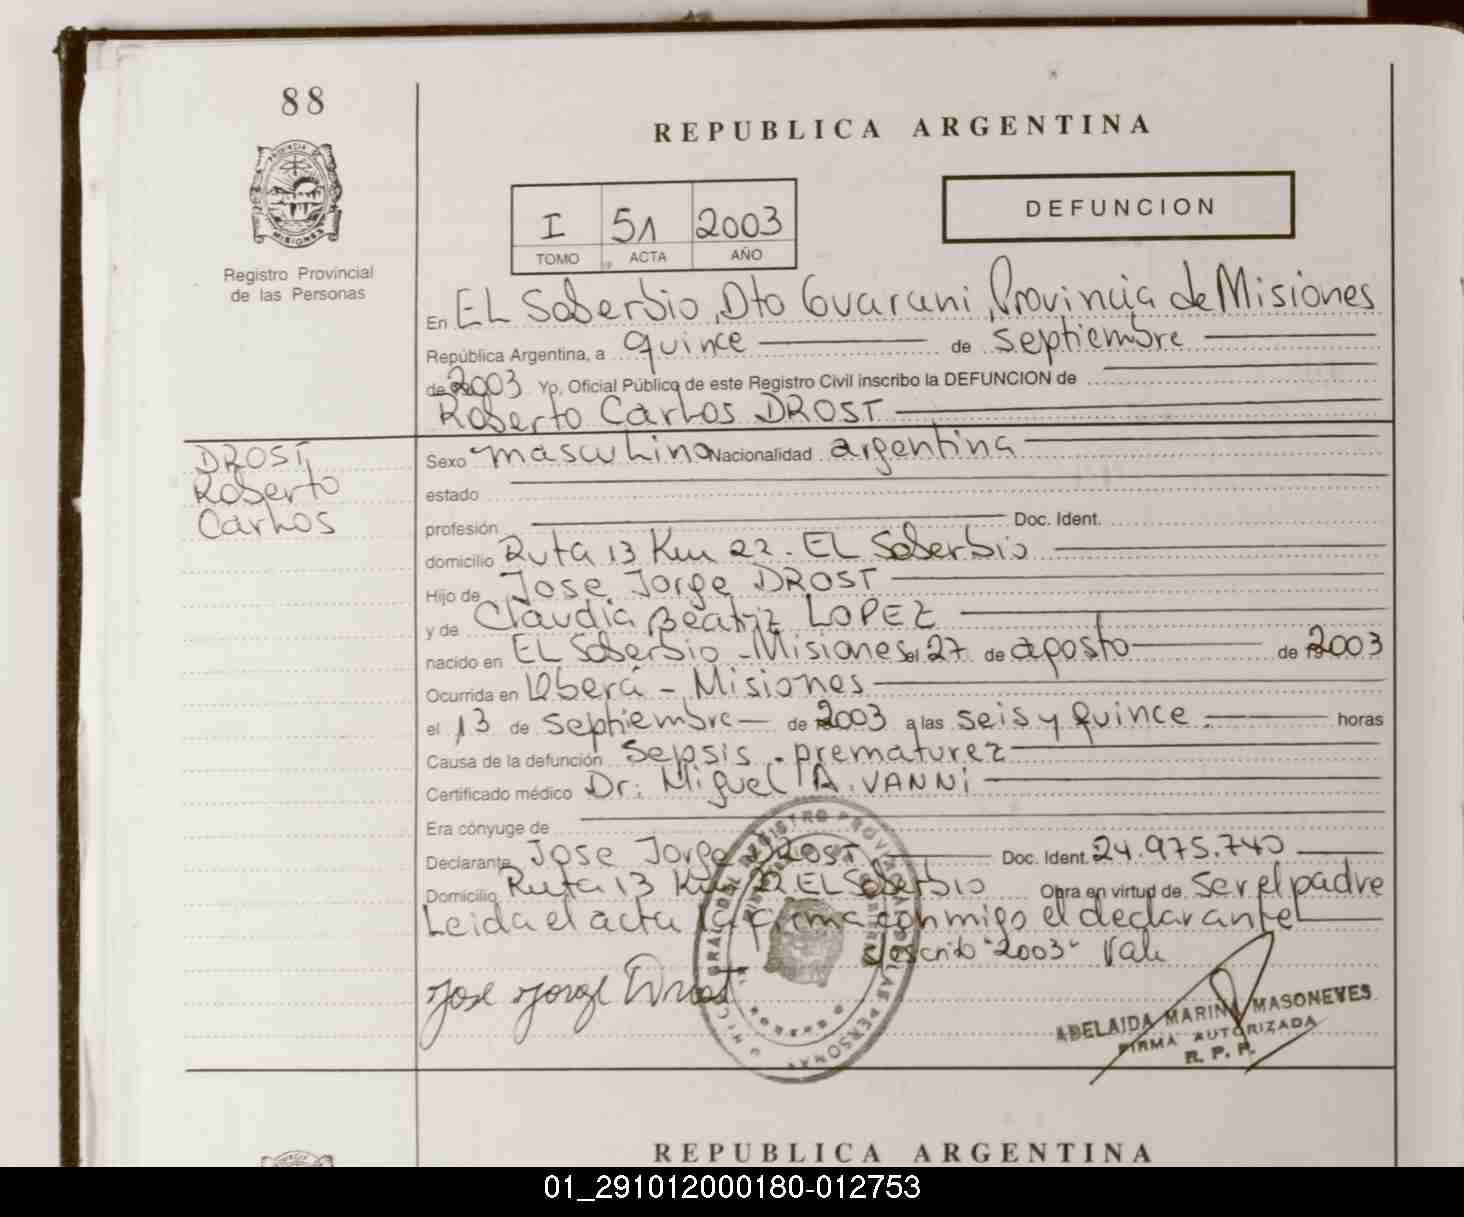 88
REPUBLICA ARGENTINA
PROVINCIA DE MISIONES
Registro Provincial
de las Personas
I 51 2003
TOMO Nº ACTA AÑO
DEFUNCION
En EL Soberbio, Dto Guarani, Provincia de Misiones
República Argentina, a quince de septiembre
de 2003 Yo, Oficial Público de este Registro Civil inscribo la DEFUNCION de
Roberto Carlos DROST
DROST,
Roberto
Carlos
Sexo masculino Nacionalidad argentina
estado
profesión Doc. Ident.
domicilio Ruta 13 Km 22. EL Soberbio
Hijo de Jose Jorge DROST
y de Claudia Beatriz LOPEZ
nacido en EL Soberbio - Misiones el 27 de agosto de 2003
Ocurrida en Oberá - Misiones
el 13 de septiembre de 2003 a las seis y quince. horas
Causa de la defunción Sepsis. prematurez
Certificado médico Dr. Miguel A. VANNI
Era cónyuge de
Declarante Jose Jorge DROST Doc. Ident. 24.975.740
Domicilio Ruta 13 Km 22. EL Soberbio Obra en virtud de ser el padre
Leida el acta la firma conmigo el declarante
"2003" Vale
Jose Jorge Drost
ADELAIDA MARINA MASONEVES
FIRMA AUTORIZADA
R. P. P.
REPUBLICA ARGENTINA
01_291012000180-012753